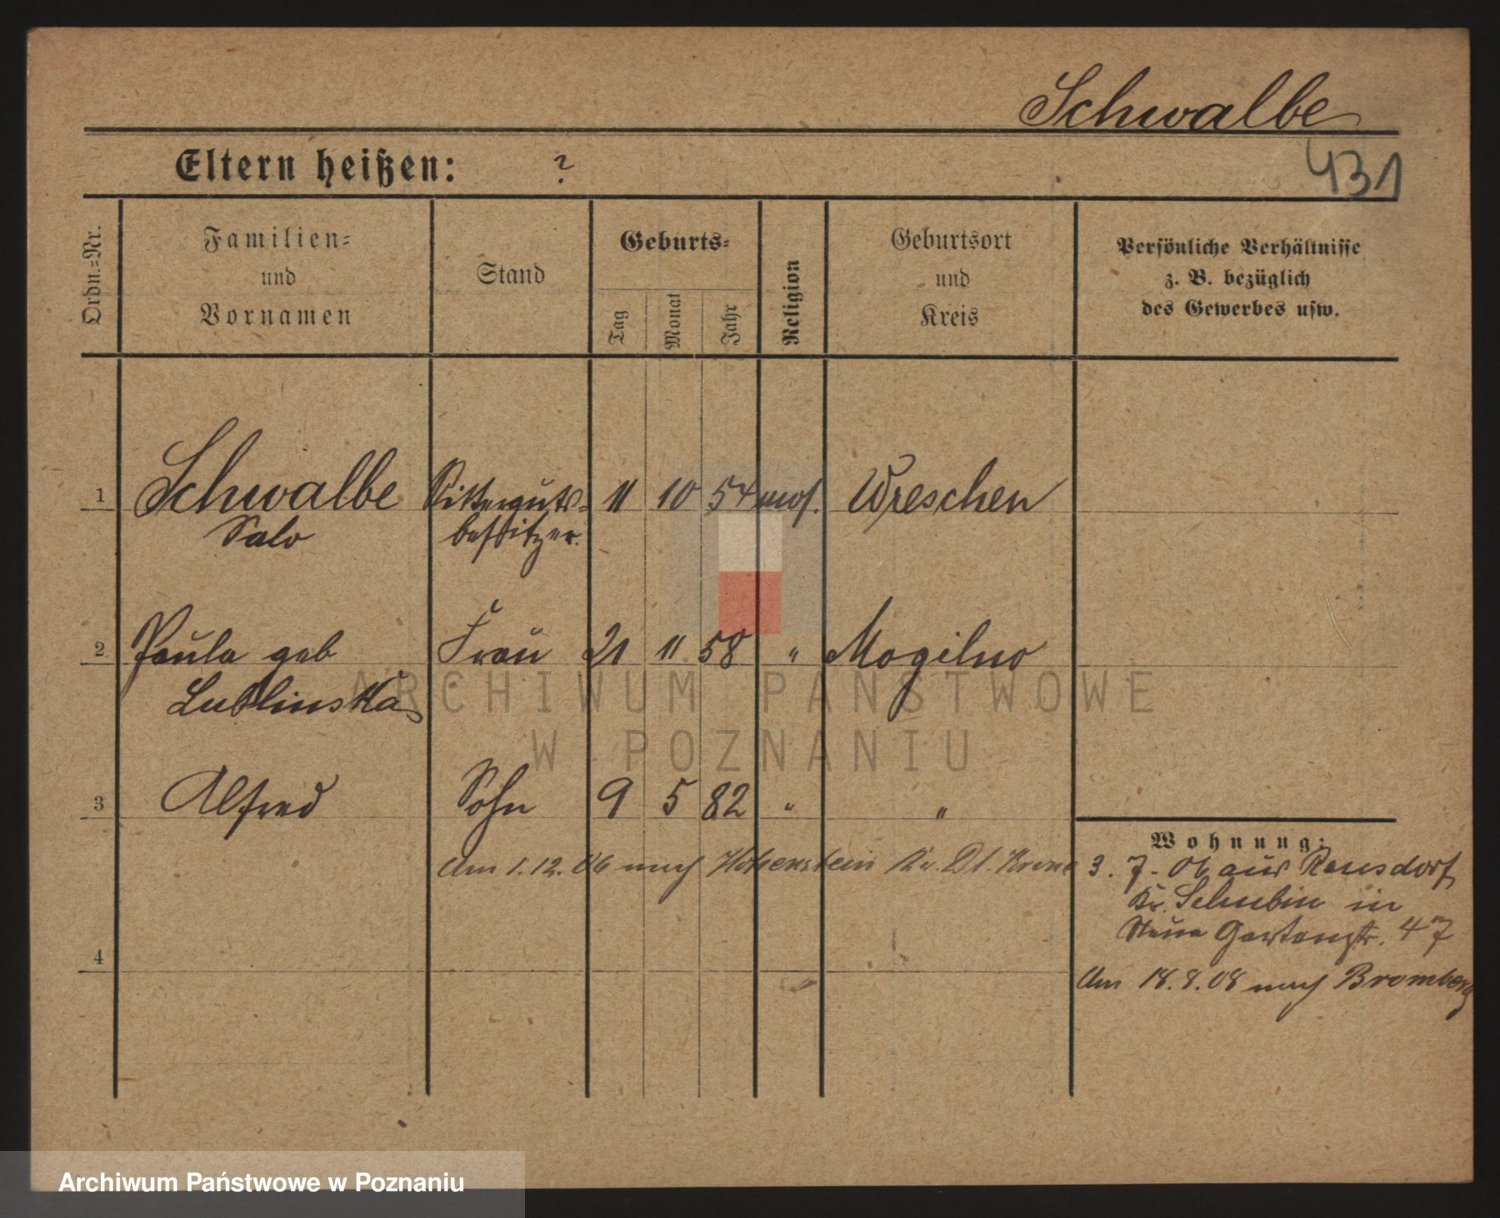 Schwalbe
Eltern heißen: ?
431
Ordn.=Nr.
Familien=
und
Vornamen
Stand
Geburts=
Tag
Monat
Jahr
Religion
Geburtsort
und
Kreis
Persönliche Verhältnisse
z. B. bezüglich
des Gewerbes usw.
1 Schwalbe Ritterguts= 11 10 54 mos. Wreschen
Salo besitzer.
2 Paula geb Frau 21 11 58 " Mogilno
Lublinska
3 Alfred Sohn 9 5 82 " "
Am 1.12.06 nach Hohenstein Kr. Dt. Krone
Wohnung:
3. 7. 06 aus
Kr. Schubin in
Neue Gartenstr. 47
Am 18.8.08 nach Bromberg
4
ARCHIWUM PAŃSTWOWE
W POZNANIU
Archiwum Państwowe w Poznaniu